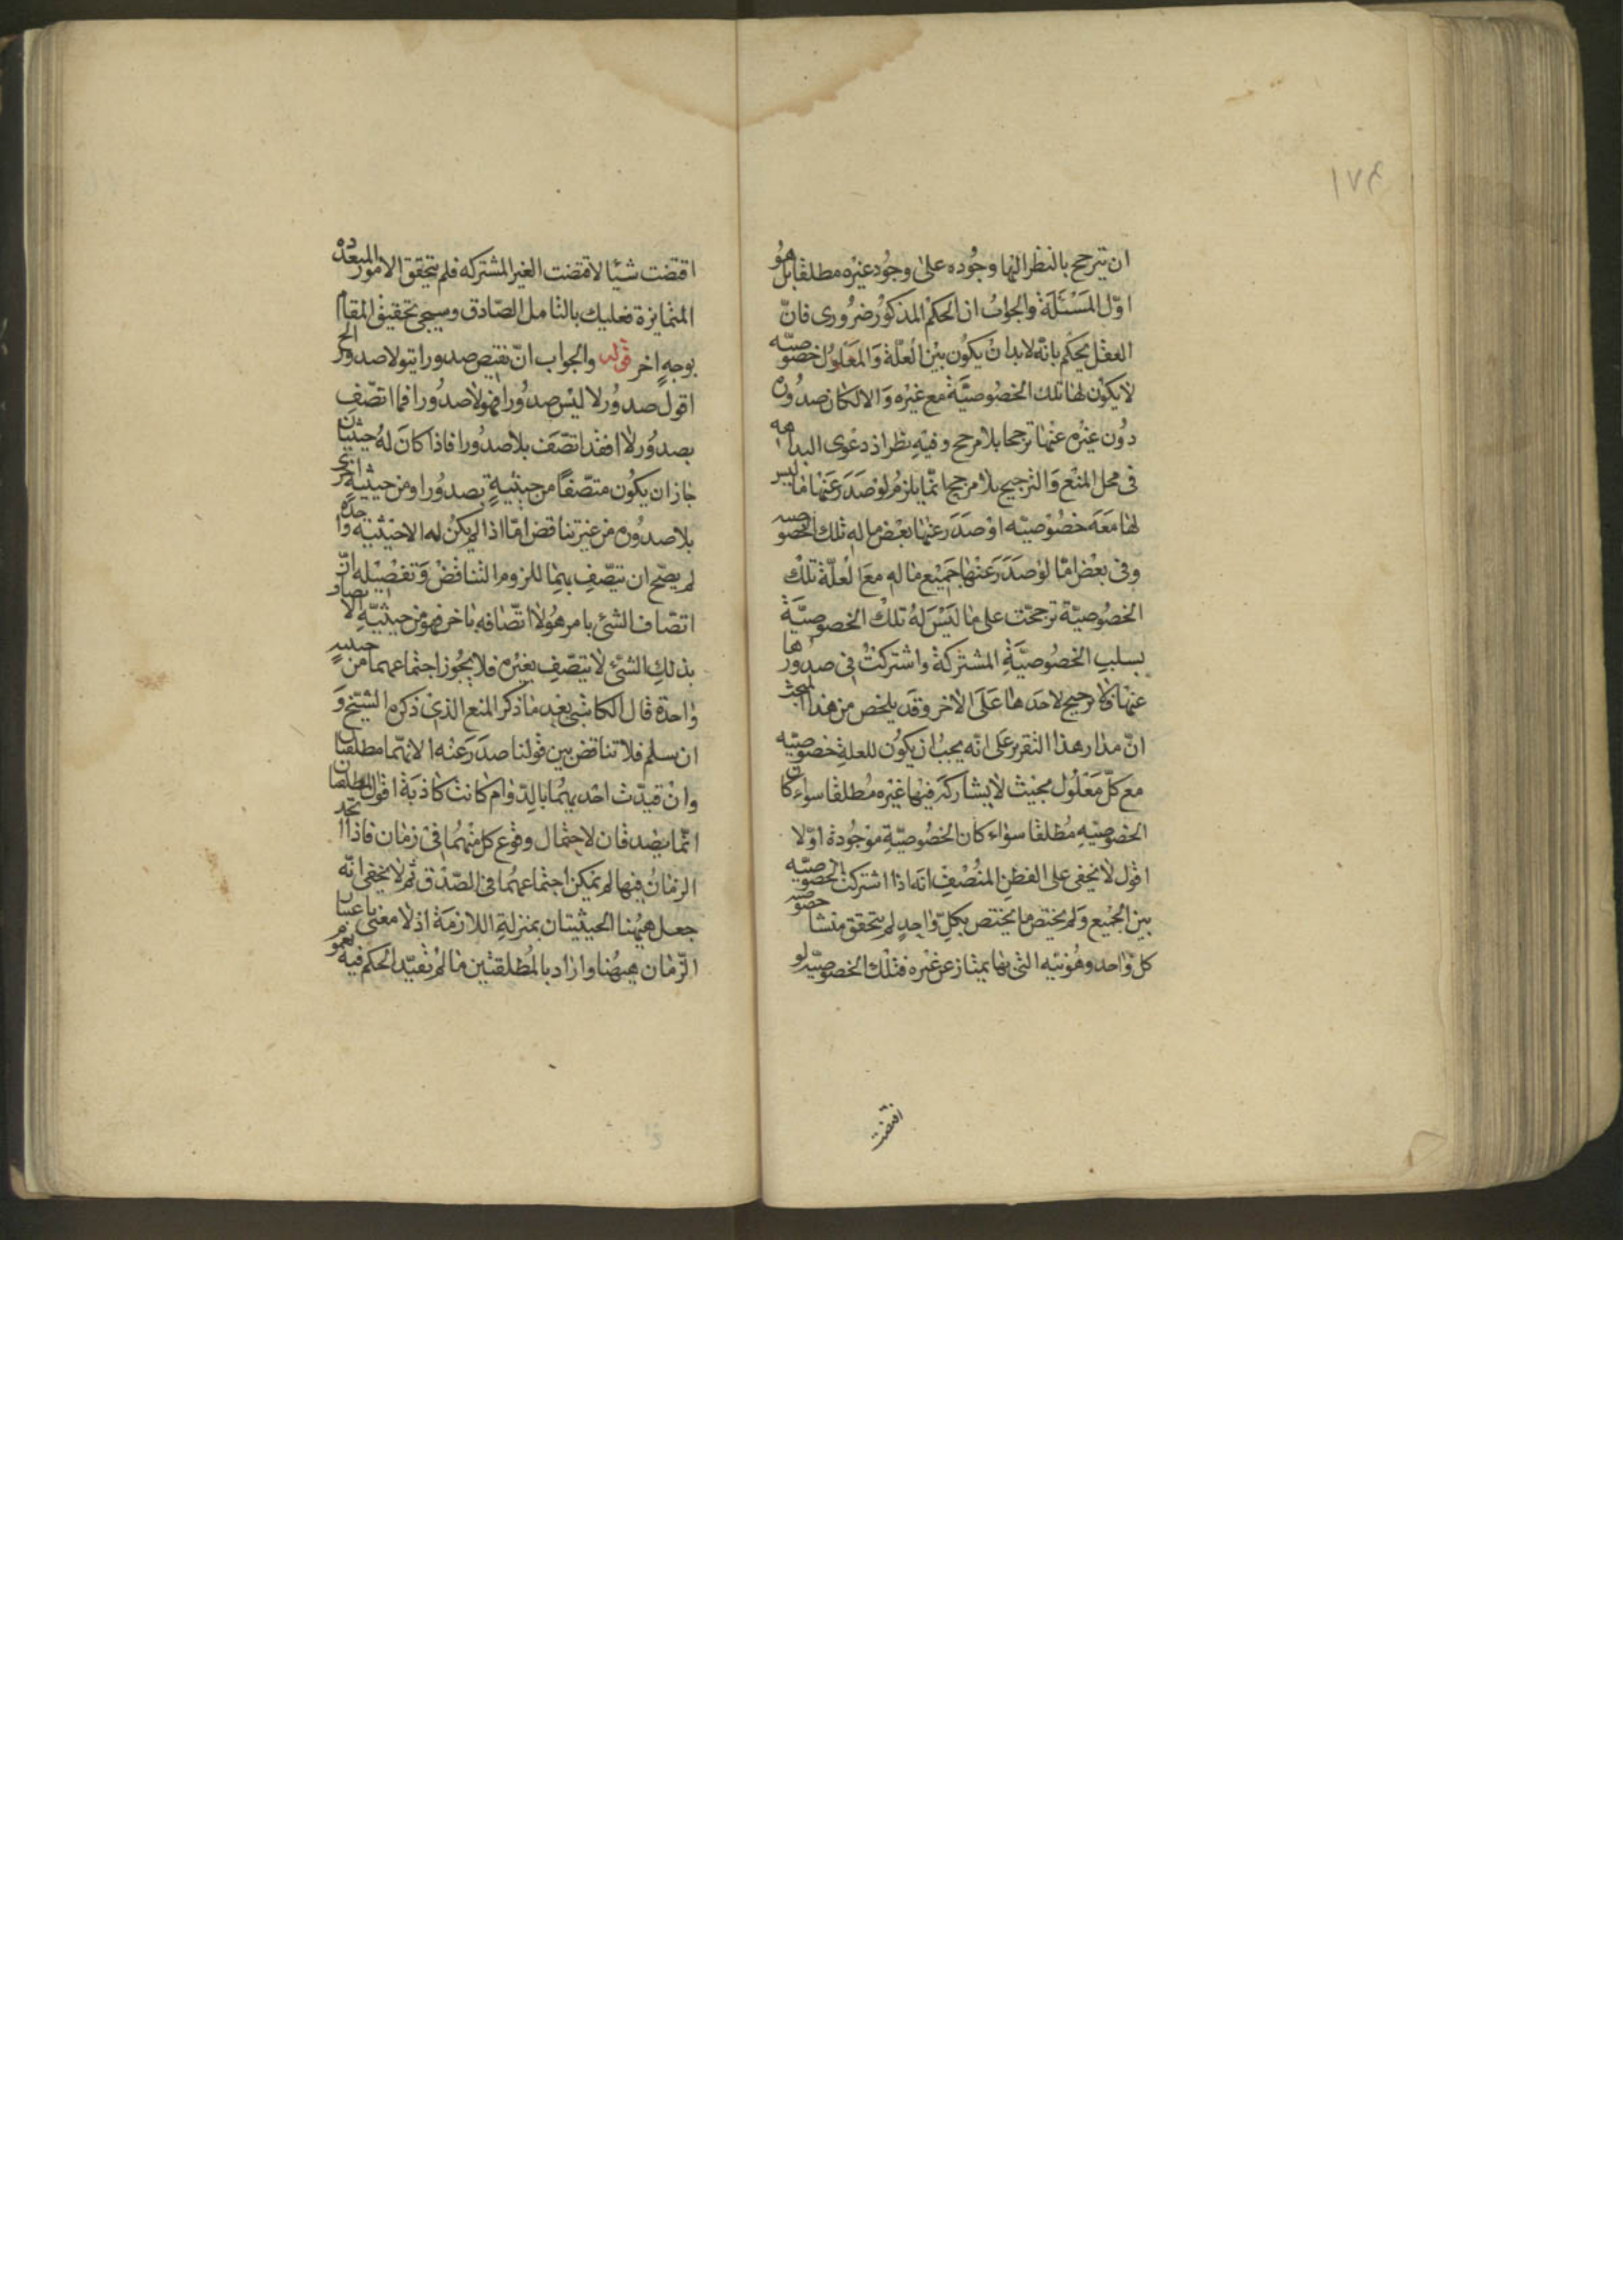 ١٧٤
ان يترجح بالنظر اليها وجوده على وجود غيره مطلقا بل هو
اوّل المسئلة والجواب ان الحكم المذكور ضرورى فانّ
العقل يحكم بانّه لا بد ان يكون بين العلّة والمعلول خصوصيّه
لا يكون لها تلك الخصوصيّة مع غيره والا لكان صدوره
دون غيره عنها ترجحا بلا مرجح وفيه نظر اذ دعوى البداهه
فى محل المنع والترجيح بلا مرجح انّما يلزم لو صدر عنها ما ليس
لها معه خصوصيّه او صدر عنها بعض ما له تلك الخصوصيه
وفى بعض امّا لو صدر عنها جميع ما له مع العلّة تلك
الخصوصيّة ترجحت على ما ليس له تلك الخصوصيّة
بسلب الخصوصيّة المشتركة واشتركت فى صدورها
عنها فلا ترجيح لاحدها على الاخر وقد يلخص من هذا المبحث
انّ مدار هذا التقرير على انّه يجب ان يكون للعلة خصوصيّه
مع كلّ معلول بحيث لا يشاركه فيها غيره مطلقا سواء كان
الخصوصيّه مطلقا سواء كان الخصوصيّة موجودة اوّلا
اقول لا يخفى على الفطن المنصف انه اذا اشتركت الخصوصيّه
بين الجميع ولم يختص ما يختص بكلّ واحد لم يتحقق منشا خصوصيه
كلّ واحد وهويّته التى بها يمتاز عن غيره فتلك الخصوصيّه لو
اقتضت
اقتضت شيئا لاقتضت الغير المشتركه فلم يتحقق الامور المتعدّده
المتمايزة فعليك بالتامل الصّادق وسيجئ تحقيق المقام
بوجه اخر قوله والجواب انّ نقيض صدور ا يتولا صدور الخ
اقول صدور لا ا ليس صدور ا فهو لا صدور ا فما اتّصف
بصدور لا ا فقد اتّصف بلا صدور ا فاذا كان له حيثيتان
جاز ان يكون متّصفا من حيثية بصدور ا ومن حيثية اخرى
بلا صدوره من غير تناقض امّا اذا لم يكن له الا حيثيّه واحده
لم يصحّ ان يتّصف بهما للزوم التناقض وتفصيله انّ
اتصاف الشئ بامر هو لا اتّصافه باخر فهو من حيثيّه الاتصاف
بذلك الشئ لا يتّصف بغيره فلا يجوز اجتماعهما من حيثيه
واحدة قال الكاشى بعد ما ذكر المنع الذى ذكره الشيخ و
ان سلم فلا تناقض بين قولنا صدر عنه ا لانّهما مطلقتان
وان قيدت احديهما بالدّوام كانت كاذبة اقول المطلقتان
انّما يصدقان لاحتمال وقوع كل منهما فى زمان فاذا اتّحد
الزمان فيها لم يمكن اجتماعهما فى الصّدق ثم لا يخفى انّه
جعل هيهنا الحيثيتان بمنزلة اللازمة اذ لا معنى باعتبار
الزّمان هيهنا واراد بالمطلقتين ما لم نقيّد الحكم فيه بعموم